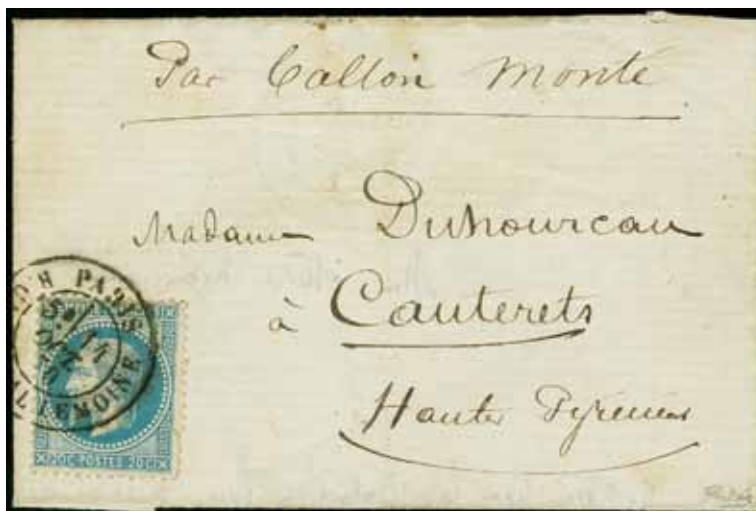 Par Ballon Monté
Madame Duhourcau
à Cauterets
Hautes Pyrenées
PARIS
LEMOINE
20C POSTES 20C